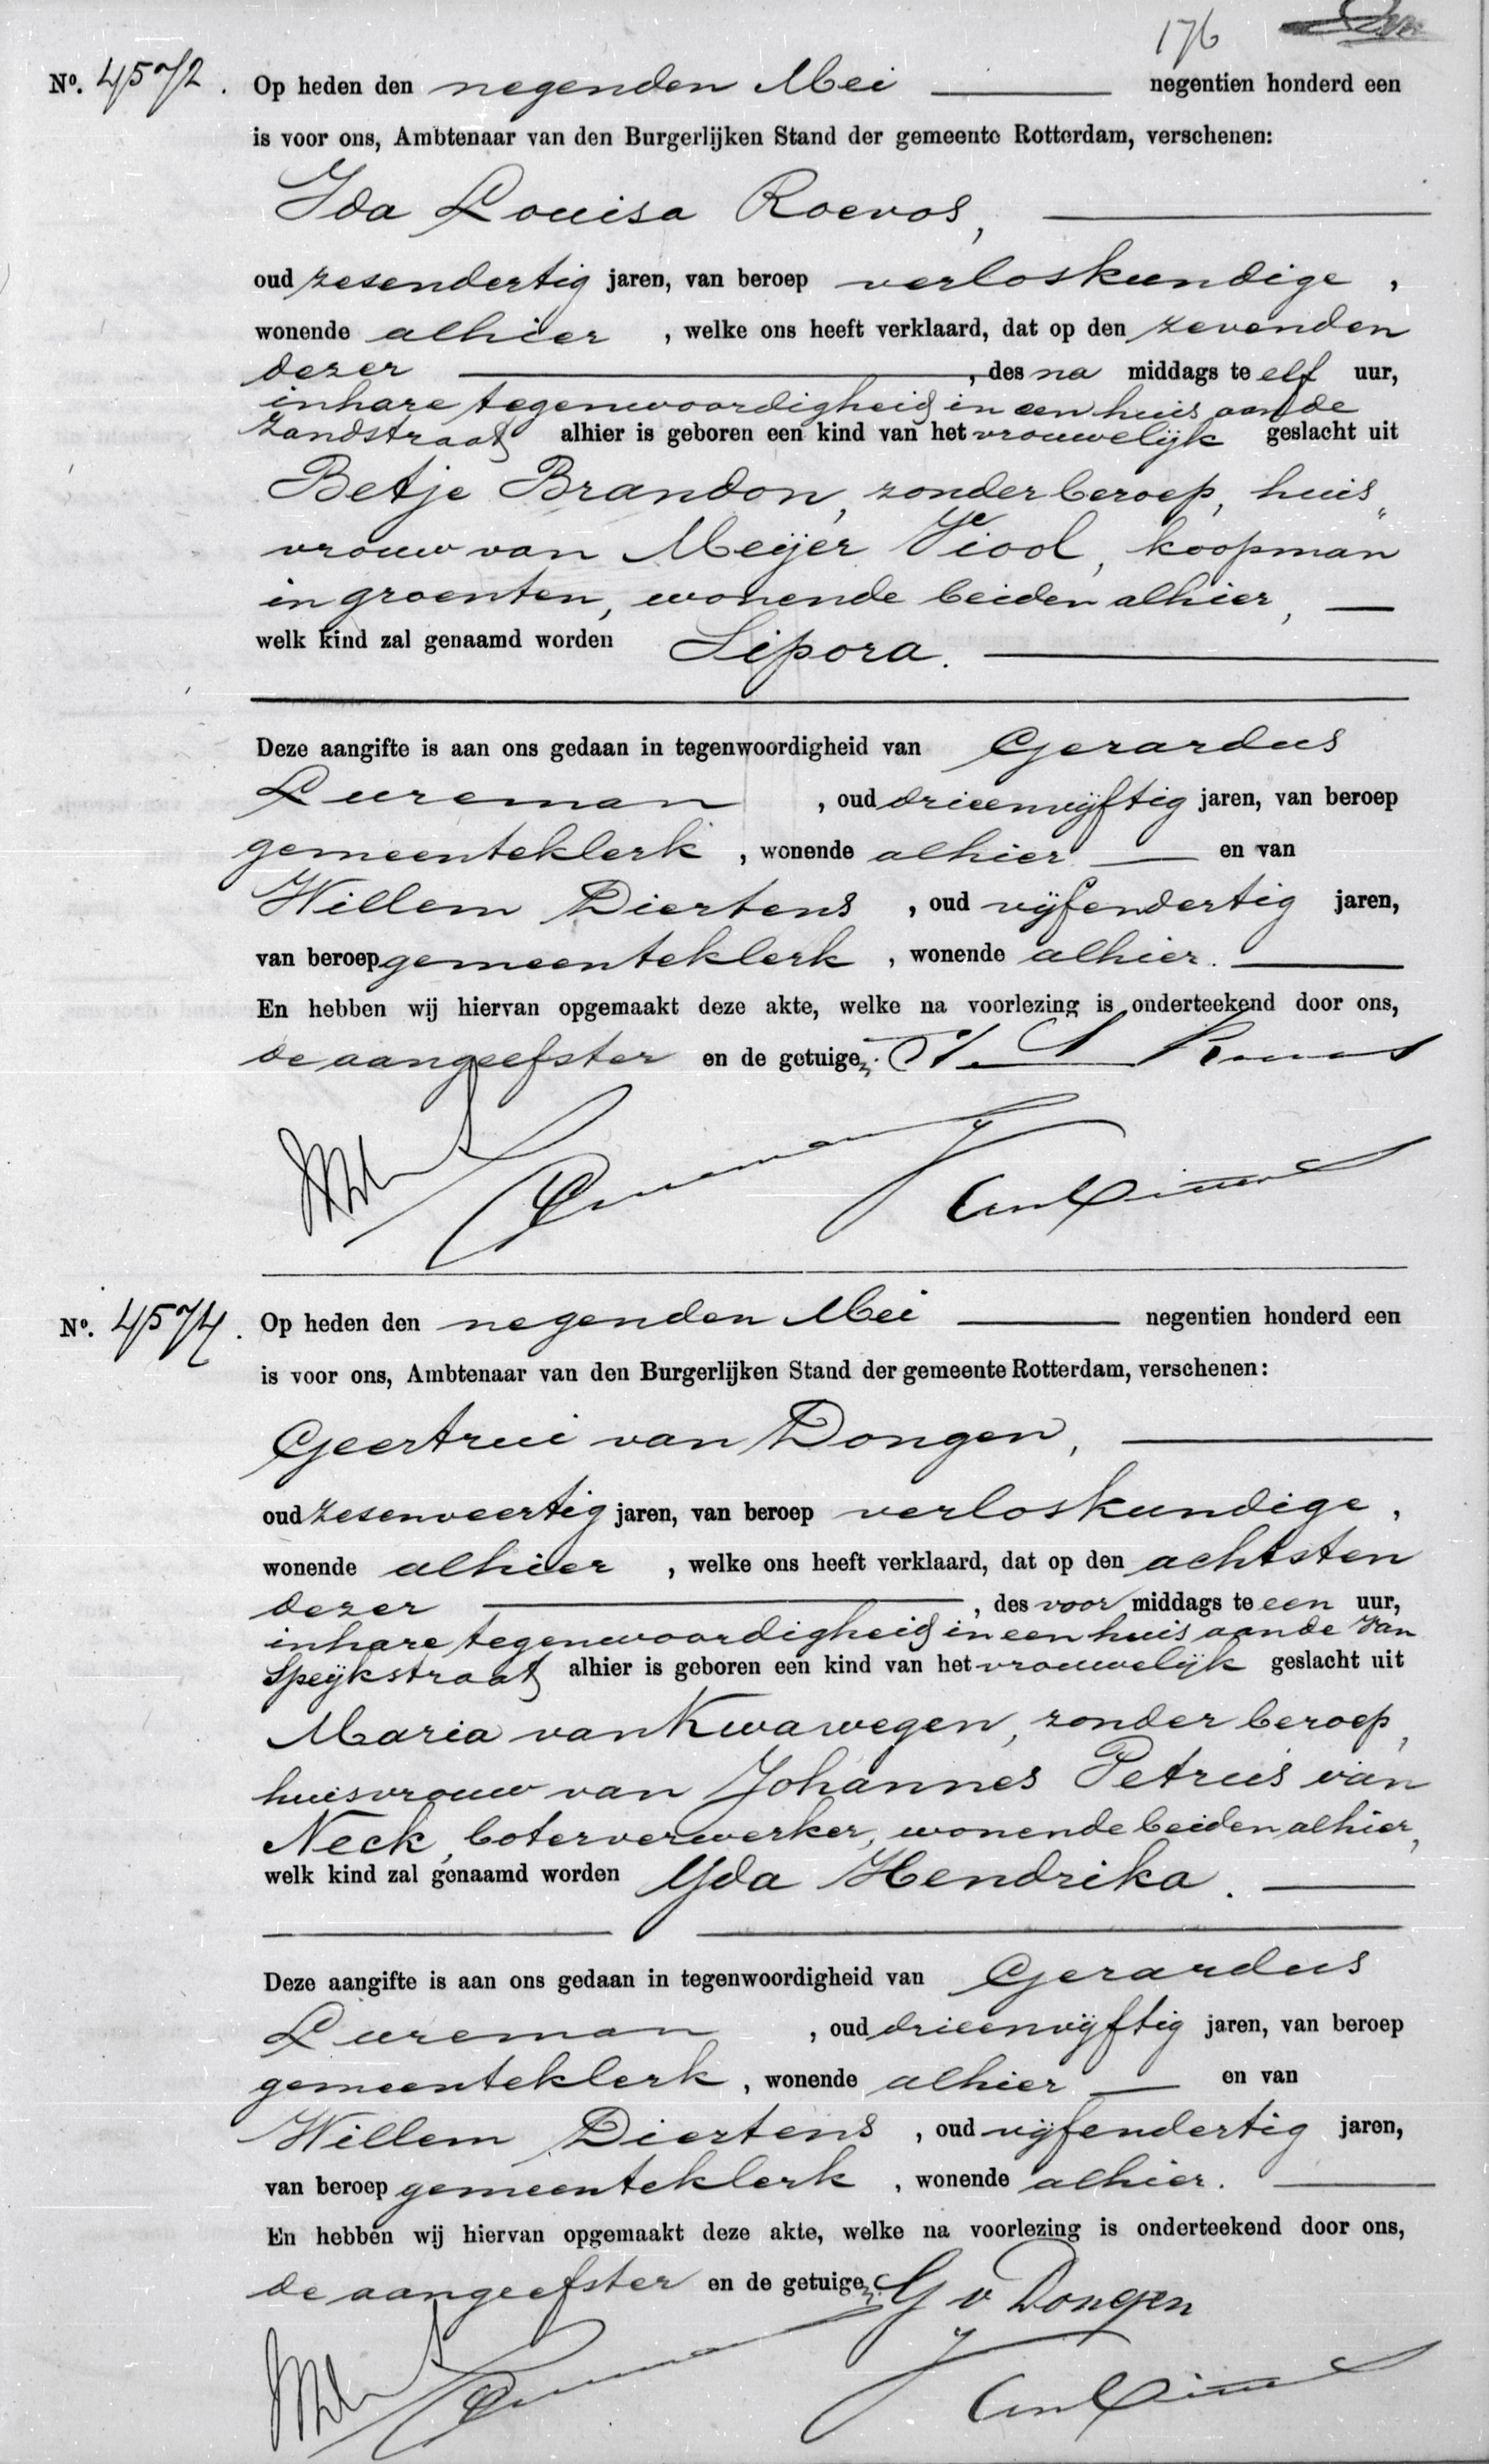 176
No. 4572. Op heden den negenden Mei negentien honderd een
is voor ons, Ambtenaar van den Burgerlijken Stand der gemeente Rotterdam, verschenen:
Ida Louisa Roevos,
oud zesendertig jaren, van beroep verloskundige,
wonende alhier, welke ons heeft verklaard, dat op den zevenden
dezer, des na middags te elf uur,
in hare tegenwoordigheid in een huis aan de
Zandstraat alhier is geboren een kind van het vrouwelijk geslacht uit
Betje Brandon, zonder beroep, huis„
vrouw van Meijer Viool, koopman
in groenten, wonende beiden alhier,
welk kind zal genaamd worden Sipora.
Deze aangifte is aan ons gedaan in tegenwoordigheid van Gerardus
Lureman, oud drieenvijftig jaren, van beroep
gemeenteklerk, wonende alhier en van
Willem Diertens, oud vijfendertig jaren,
van beroep gemeenteklerk, wonende alhier.
En hebben wij hiervan opgemaakt deze akte, welke na voorlezing is onderteekend door ons,
de aangeefster en de getuigen.
No. 4574. Op heden den negenden Mei negentien honderd een
is voor ons, Ambtenaar van den Burgerlijken Stand der gemeente Rotterdam, verschenen:
Geertrui van Dongen,
oud zesenveertig jaren, van beroep verloskundige,
wonende alhier, welke ons heeft verklaard, dat op den achtsten
dezer, des voor middags te een uur,
in hare tegenwoordigheid in een huis aan de Van
Speijkstraat alhier is geboren een kind van het vrouwelijk geslacht uit
Maria van Kwawegen, zonder beroep,
huisvrouw van Johannes Petrus van
Neck, boterverwerker, wonende beiden alhier,
welk kind zal genaamd worden Yda Hendrika.
Deze aangifte is aan ons gedaan in tegenwoordigheid van Gerardus
Lureman, oud drieenvijftig jaren, van beroep
gemeenteklerk, wonende alhier en van
Willem Diertens, oud vijfendertig jaren,
van beroep gemeenteklerk, wonende alhier.
En hebben wij hiervan opgemaakt deze akte, welke na voorlezing is onderteekend door ons,
de aangeefster en de getuigen. G v Dongen